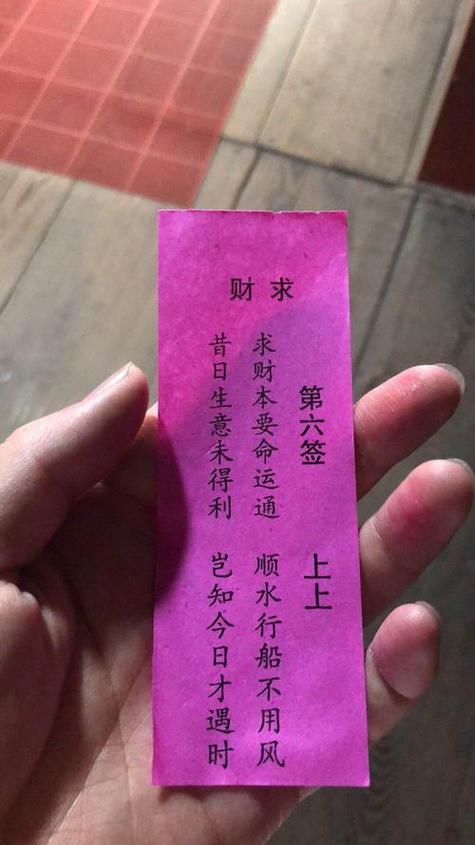 求财
第六签 上上
求财本要命运通 顺水行船不用风
昔日生意未得利 岂知今日才遇时